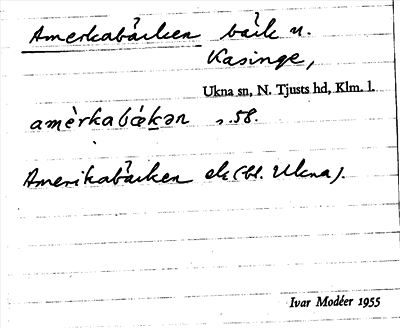 Amerkabäcken bäck n.
Kasinge,
Ukna sn, N. Tjusts hd, Klm. l.
amèrkabækən s. 58.
Amerikabäcken ek (bl. Ukna).
Ivar Modéer 1955